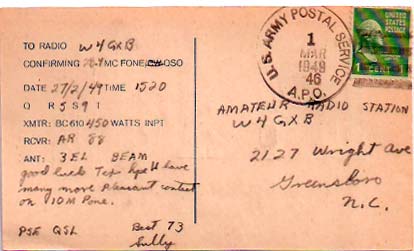 TO RADIO W4GXB
CONFIRMING 28.4 MC FONE CW QSO
DATE 27/2/49 TIME 1520
Q R 5 S 9 T
XMTR: BC610 450 WATTS INPT
RCVR: AR 88
ANT: 3EL BEAM
good luck Tex hpe U have
many more Pleasant contact
on 10M Fone.
PSE QSL Best 73
Sully
U.S. ARMY POSTAL SERVICE
1
MAR
1949
46
A.P.O.
UNITED STATES
POSTAGE
1 CENT 1
AMATEUR RADIO STATION
W4GXB
2127 Wright Ave
Greensboro
N.C.